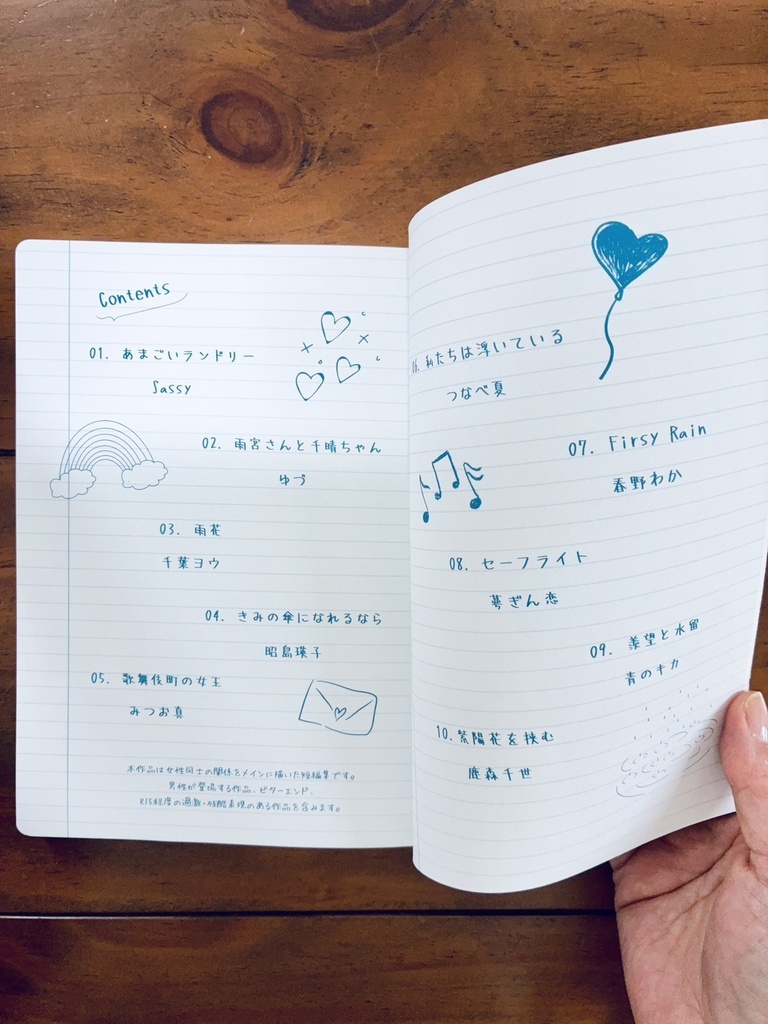 Contents
01. あまごいランドリー
Sassy
02. 雨宮さんと千晴ちゃん
ゆづ
03. 雨花
千葉ヨウ
04. きみの傘になれるなら
昭島瑛子
05. 歌舞伎町の女王
みつお真
本作品は女性同士の関係をメインに描いた短編集です。
男性が登場する作品、ビターエンド、
R15程度の過激・残酷表現のある作品を含みます。
06. 私たちは浮いている
つなべ夏
07. Firsy Rain
春野わか
08. セーフライト
夢ぎん恋
09. 羨望と水留
青のキカ
10. 紫陽花を挟む
鹿森千世